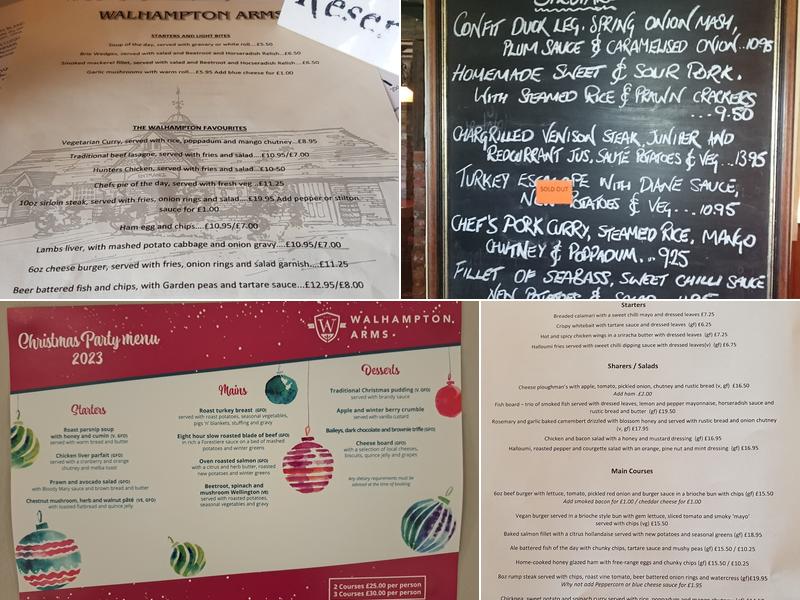 WALHAMPTON ARMS
STARTERS AND LIGHT BITES
Soup of the day, served with granary or white roll...£5.50
Brie Wedges, served with salad and Beetroot and Horseradish Relish...£6.50
Smoked mackerel fillet, served with salad and Beetroot and Horseradish Relish...£6.50
Garlic mushrooms with warm roll...£5.95 Add blue cheese for £1.00
THE WALHAMPTON FAVOURITES
Vegetarian Curry, served with rice, poppadum and mango chutney...£8.95
Traditional beef lasagne, served with fries and salad....£10.95/£7.00
Hunters Chicken, served with fries and salad...£10-50
Chefs pie of the day, served with fresh veg ..£11.25
10oz sirloin steak, served with fries, onion rings and salad....£19.95 Add pepper or stilton
sauce for £1.00
Ham egg and chips....£10.95/£7.00
Lambs liver, with mashed potato cabbage and onion gravy....£10.95/£7.00
6oz cheese burger, served with fries, onion rings and salad garnish....£11.25
Beer battered fish and chips, with Garden peas and tartare sauce...£12.95/£8.00
Reser
CONFIT DUCK LEG, SPRING ONION MASH,
PLUM SAUCE & CARAMELISED ONION..10.95
HOMEMADE SWEET & SOUR PORK.
WITH STEAMED RICE & PRAWN CRACKERS
...9.50
CHARGRILLED VENISON STEAK, JUNIPER AND
REDCURRANT JUS, SAUTE POTATOES & VEG...13.95
TURKEY ESCALOPE WITH DIANE SAUCE,
SOLD OUT
POTATOES & VEG...10.95
CHEF'S PORK CURRY, STEAMED RICE, MANGO
CHUTNEY & POPPADUM...9.25
FILLET OF SEABASS, SWEET CHILLI SAUCE
NEW POTATOES & SALAD
Christmas Party menu
2023
WALHAMPTON
ARMS
Starters
Roast parsnip soup
with honey and cumin (V, GFO)
served with warm bread and butter
Chicken liver parfait (GFO)
served with a cranberry and orange
chutney and melba toast
Prawn and avocado salad (GFO)
with Bloody Mary sauce and brown bread and butter
Chestnut mushroom, herb and walnut pâté (VE, GFO)
with toasted flatbread and quince jelly
Mains
Roast turkey breast (GFO)
served with roast potatoes, seasonal vegetables,
pigs 'n' blankets, stuffing and gravy
Eight hour slow roasted blade of beef (GFO)
in a rich Forestiere sauce on a bed of mashed
potatoes and winter greens
Oven roasted salmon (GFO)
with a citrus and herb butter, roasted
new potatoes and winter greens
Beetroot, spinach and
mushroom Wellington (VE)
served with roasted potatoes,
seasonal vegetables and gravy
Desserts
Traditional Christmas pudding (V, GFO)
served with brandy sauce
Apple and winter berry crumble
served with vanilla custard
Baileys, dark chocolate and brownie trifle (GFO)
Cheese board (GFO)
with a selection of local cheeses,
biscuits, quince jelly and grapes
Any dietary requirements must be
advised at the time of booking
2 Courses £25.00 per person
3 Courses £30.00 per person
Starters
Breaded calamari with a sweet chilli mayo and dressed leaves £7.25
Crispy whitebait with tartare sauce and dressed leaves (gf) £6.25
Hot and spicy chicken wings in a sriracha butter with dressed leaves (gf) £7.25
Halloumi fries served with sweet chilli dipping sauce with dressed leaves(v) (gf) £6.75
Sharers / Salads
Cheese ploughman's with apple, tomato, pickled onion, chutney and rustic bread (v, gf) £16.50
Add ham .£2.00
Fish board – trio of smoked fish served with dressed leaves, lemon and pepper mayonnaise, horseradish sauce and
rustic bread and butter (gf) £19.50
Rosemary and garlic baked camembert drizzled with blossom honey and served with rustic bread and onion chutney
(v, gf) £17.95
Chicken and bacon salad with a honey and mustard dressing (gf) £16.95
Halloumi, roasted pepper and courgette salad with an orange, pine nut and mint dressing (gf) £16.95
Main Courses
6oz beef burger with lettuce, tomato, pickled red onion and burger sauce in a brioche bun with chips (gf) £15.50
Add smoked bacon for £1.00 / cheddar cheese for £1.00
Vegan burger served in a brioche style bun with gem lettuce, sliced tomato and smoky 'mayo'
served with chips (vg) £15.50
Baked salmon fillet with a citrus hollandaise served with new potatoes and seasonal greens (gf) £18.95
Ale battered fish of the day with chunky chips, tartare sauce and mushy peas (gf) £15.50 / £10.25
Home-cooked honey glazed ham with free-range eggs and chunky chips (gf) £15.50 / £10.25
8oz rump steak served with chips, roast vine tomato, beer battered onion rings and watercress (gf)£19.95
Why not add Peppercorn or blue cheese sauce for £1.95